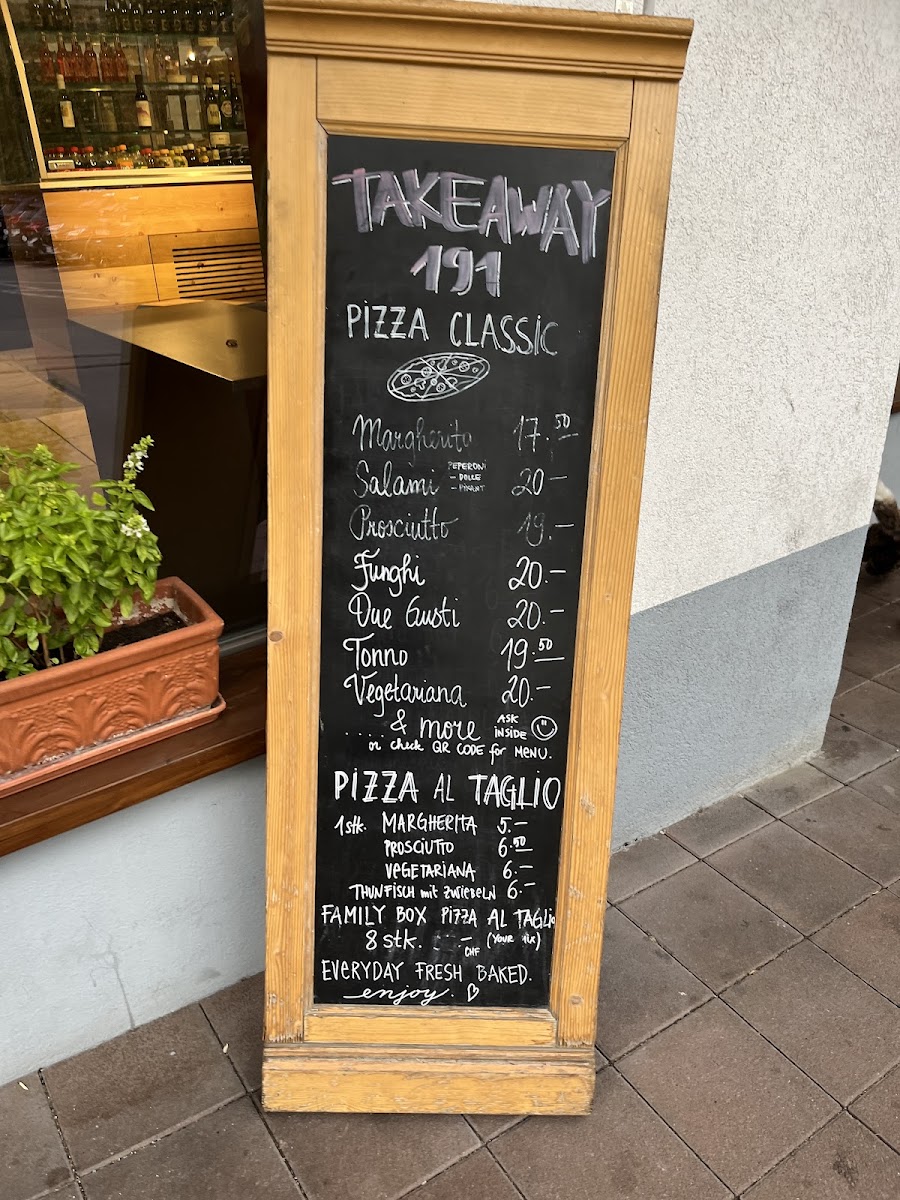 TAKEAWAY
191
PIZZA CLASSIC
Margherita 17.50
Salami PEPERONI - DOLCE - PIKANT 20.-
Prosciutto 19.-
Funghi 20.-
Due Gusti 20.-
Tonno 19.50
Vegetariana 20.-
.... & more ASK INSIDE
or check QR CODE for MENU.
PIZZA AL TAGLIO
1stk. MARGHERITA 5.-
PROSCIUTTO 6.50
VEGETARIANA 6.-
THUNFISCH mit ZWIEBELN 6.-
FAMILY BOX PIZZA AL TAGLIO
8 stk. .- CHF (YOUR MIX)
EVERYDAY FRESH BAKED.
enjoy.